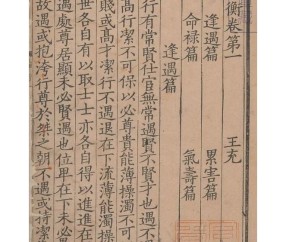 衡卷第一 王充
逢遇篇 累害篇
命祿篇 氣壽篇
逢遇篇
行有常賢仕宦無常遇賢不賢才也遇不
高行潔不可保以必尊貴能薄操濁不可
賤或高才潔行不遇退在下流薄能濁操
世各自有以取士士亦各自得以進進在
遇處尊居顯未必賢遇也位卑在下未必
故遇或抱洿行尊於桀之朝不遇或持潔